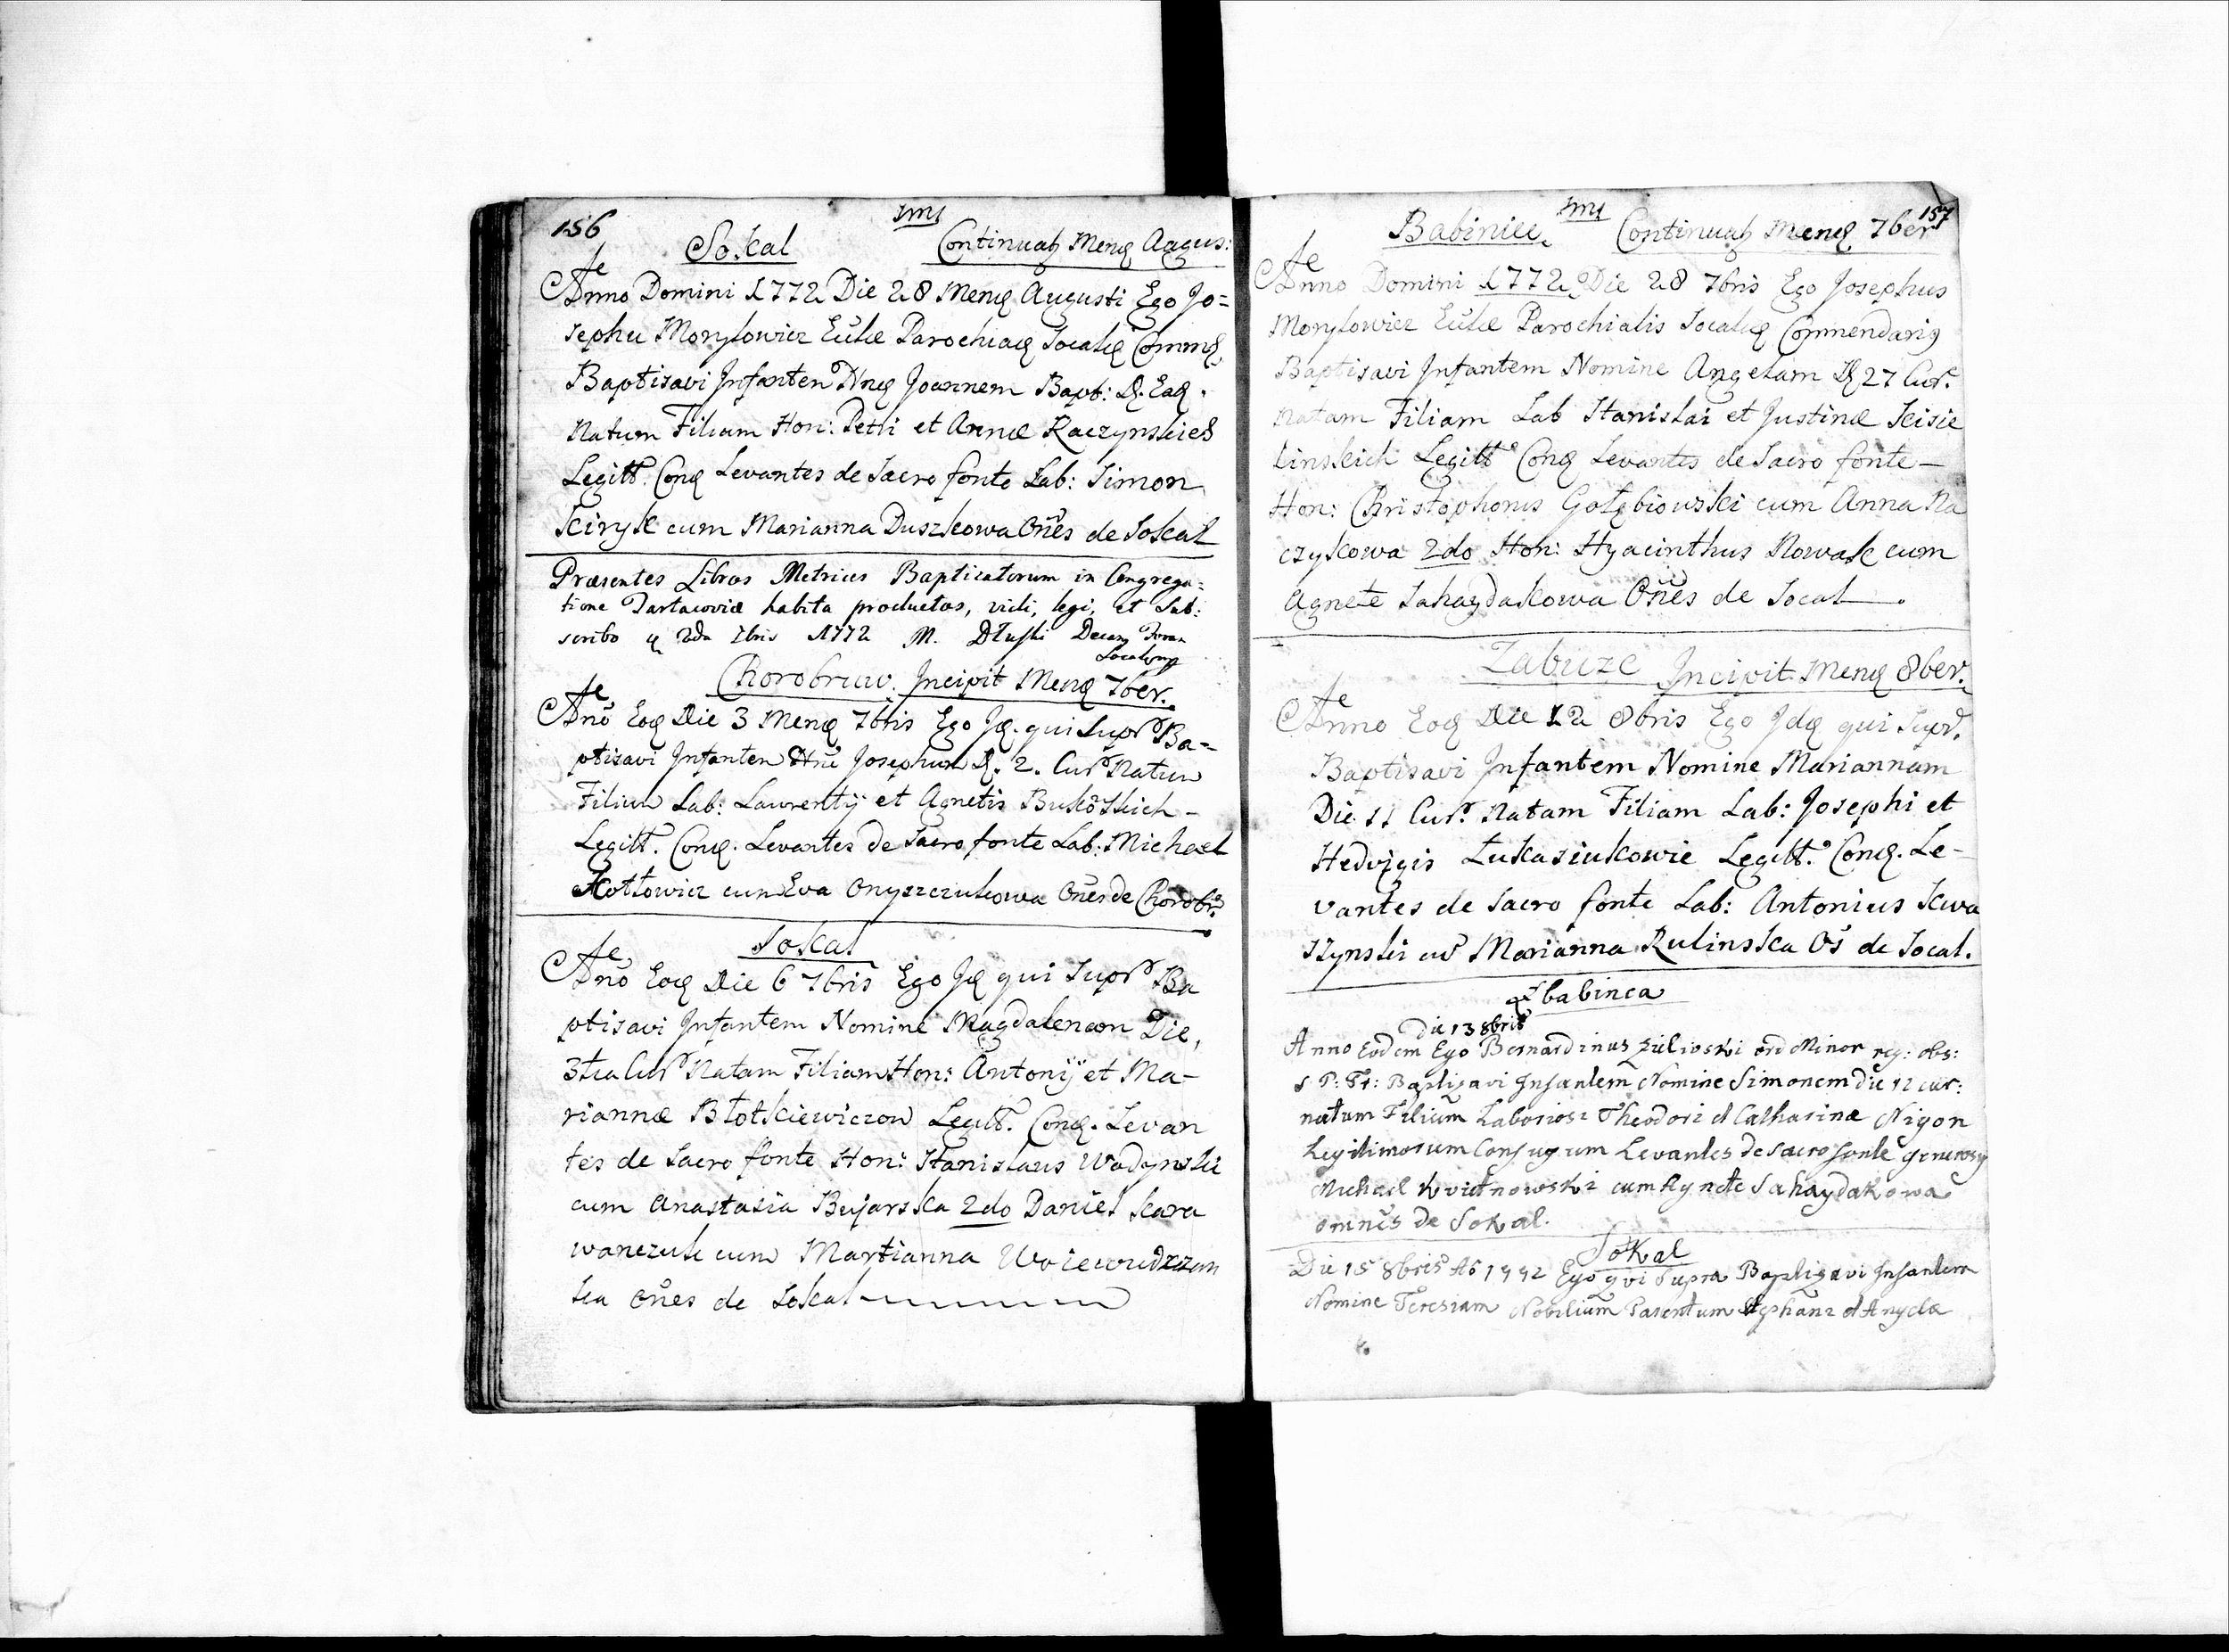 156
Sokal Continuatq Mensq Augus:
Anno Domini 1772 Die 28 Mensq Augusti Ego Jo=
sephu Morylowicz Eccliæ Parochiaq Socalq Commq
Baptisavi Infantem Nnq Joannem Bapt: D. Eaq.
Natum Filium Hon: Petri et Annæ Raczynskich
Legitt. Conq Levantes de Sacro fonte Lab: Simon
Kiryk cum Marianna Duszkowa Ones de Sokal
Præsentes Libros Metrices Baptizatorum in Congrega-
tione Tartacoviæ habita productos, vidi, legi, et Sub:
scribo 2da 7bris 1772 M. Dłuski Decang Foran
Socalung
Chorobruw. Incipit Mensq 7ber.
Ano Eoq Die 3 Mensq 7bris Ego Jq. qui Supr Ba=
ptisavi Infanten Nne Josephum D. 2. Cur Natum
Filium Lab: Laurentij et Agnetis Bukoskich -
Legitt. Conq. Levantes de Sacro fonte Lab: Michael
Kotłowicz cum Eva Onyszczukowa Ones de Chorobr.
Sokal
Ano Eoq Die 6 7bris Ego Jq qui Supr Ba
ptisavi Infantem Nomine Magdalenam Die,
3tia Cur Natam Filiam Hon: Antonij et Ma-
riannæ Błotkiewiczow Legitt. Conq. Levan
tes de Sacro fonte Hon: Stanislaus Wodynski
cum Anastasia Bujarska 2do Daniel Kara
wanczuk cum Martianna Woiewudzzan
ka ones de Sokal
157
Babiniec Continuatq Mensq 7ber
Anno Domini 1772 Die 28 7bris Ego Josephus
Morylowicz Eccliæ Parochialis Socalq Commendariq
Baptisavi Infantem Nomine Angelam D 27 Cur.
natam Filiam Lab Stanislai et Justinæ Kisie
linskich Legitt Conq Levantes de Sacro fonte —
Hon: Christophorus Gołębiowski cum Anna Ra
czykowa 2do Hon: Hyacinthus Nowak cum
Agnete Sahaydakowa Ones de Socal
Zabuze Incipit Mensq 8ber.
Anno Eoq Die 12 8bris Ego Jdq qui Supr.
Baptisavi Infantem Nomine Mariannam
Die 11 Cur. Natam Filiam Lab: Josephi et
Hedvigis Łukasiukowie Legitt. Conq. Le-
vantes de Sacro fonte Lab: Antonius Kwa
szynski cu Marianna Rulinska Os de Socal.
Zbabinca
die 13 8bris
Anno Eodem Ego Bernardinus Zulioski ord Minor reg: obs:
S P: Fr: Baptizavi Infantem Nomine Simonem die 12 cur:
natum Filium Laborios: Theodori et Catharinæ Nigon
Legitimorum Conjugum Levantes de sacro fonte generosq
Michael Kvietnowski cum Agnete Sahaydakowa
omnes de Sokal.
Sokal
Die 15 8bris Ao 1772 Ego qvi Supra Baptizavi Infantem
Nomine Teresiam Nobilium Parentum Stephani et Angela